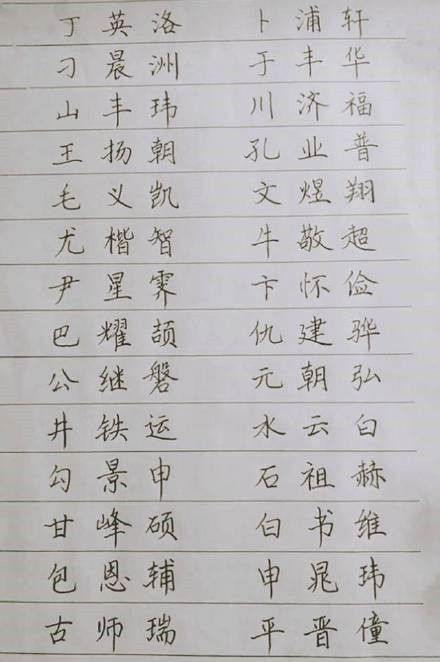 丁英洛 卜浦轩
刁晨洲 于丰华
山丰玮 川济福
王扬朝 孔业普
毛义凯 文煜翔
尤楷智 牛敬超
尹星霁 卞怀俭
巴耀颉 仇建骅
公继磐 元朝弘
井铁运 水云白
勾景申 石祖赫
甘峰硕 白书维
包恩辅 申晁玮
古师瑞 平晋僮